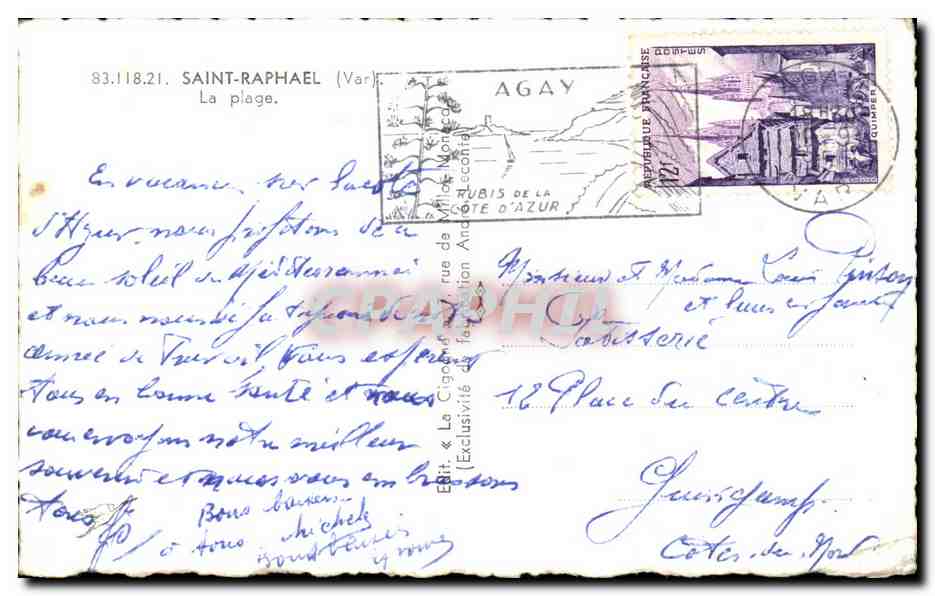 83.118.21. SAINT-RAPHAEL (Var)
La plage.
AGAY
RUBIS DE LA
CÔTE D'AZUR
POSTES
REPUBLIQUE FRANÇAISE
12F
QUIMPER
VAR
En vacances sur la côte
d'Azur nous profitons de
beau soleil
et nous nous
année de Travail Vous
tous en bonne santé et nous
vous envoyons notre meilleur
souvenir et nous vous embrassons
tous
Bons baisers
à tous Michel
Edit. « La Cigogne » rue de Millo, Monaco
(Exclusivité de fabrication André Leconte)
CPAPHIL
Monsieur et Madame Louis
et leurs enfants
Patisserie
12 Place du centre
Guingamp
Côtes du Nord